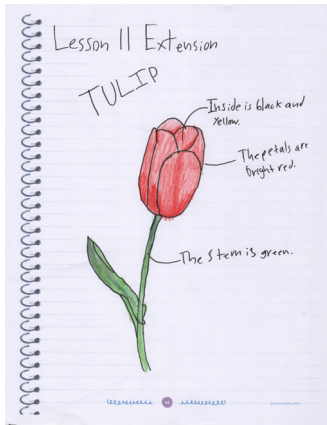 Lesson 11 Extension
TULIP
Inside is black and
yellow.
The petals are
bright red.
The stem is green.